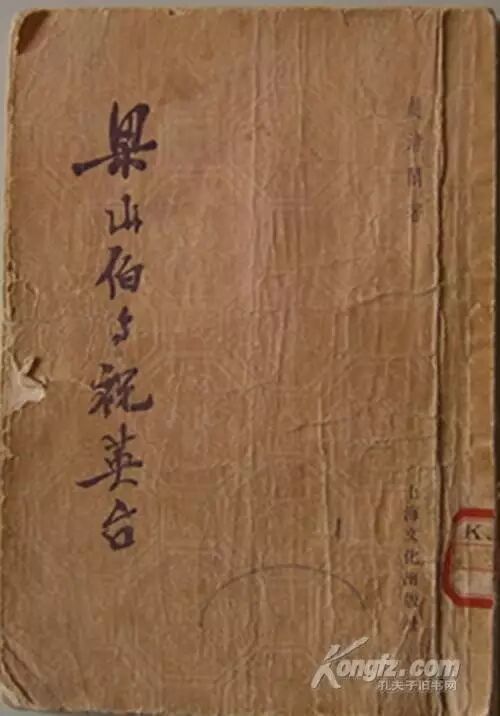 梁山伯与祝英台
趙清閣著
上海文化出版社
K.
Kongfz.com
孔夫子旧书网